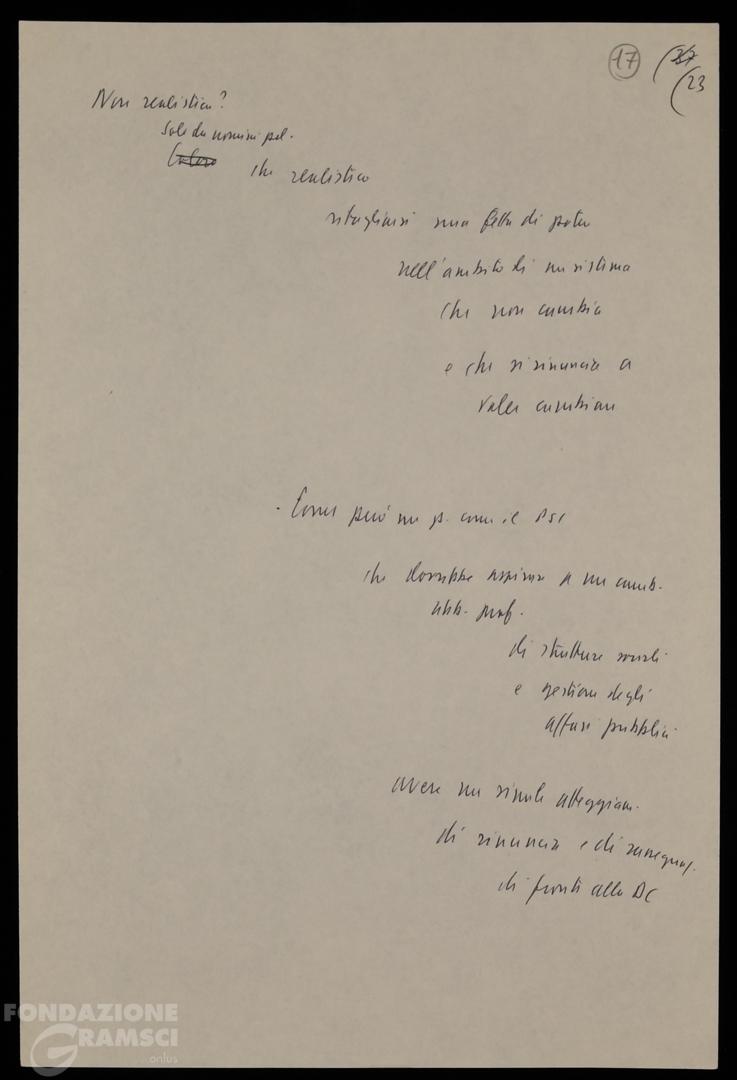 17
37
23
Non realistica?
Solo da uomini pol.
che realistico
ritagliarsi una fetta di potere
nell'ambito di un sistema
che non cambia
e che si rinuncia a
voler cambiare
- Come può un p. come il PSI
che dovrebbe aspirare a un camb.
abb. prof.
di strutture sociali
e gestione degli
affari pubblici
avere un simile atteggiam.
di rinuncia e di rassegnaz.
di fronte alla DC
FONDAZIONE
GRAMSCI
onlus